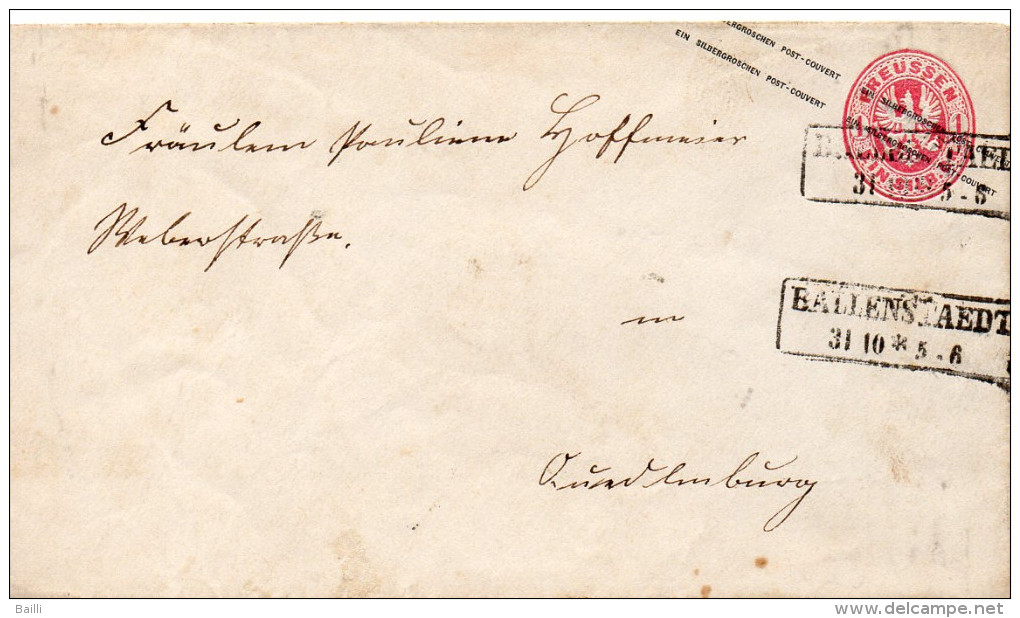 EIN SILBERGROSCHEN POST-COUVERT
EIN SILBERGROSCHEN POST-COUVERT
PREUSSEN
1 1
EIN SILBERGR.
Fräulein Pauline Hoffmeier
Weberstraße.
31 5-6
BALLENSTAEDT
31 10 * 5-6
in
Quedlinburg
Bailli
delcampe.net